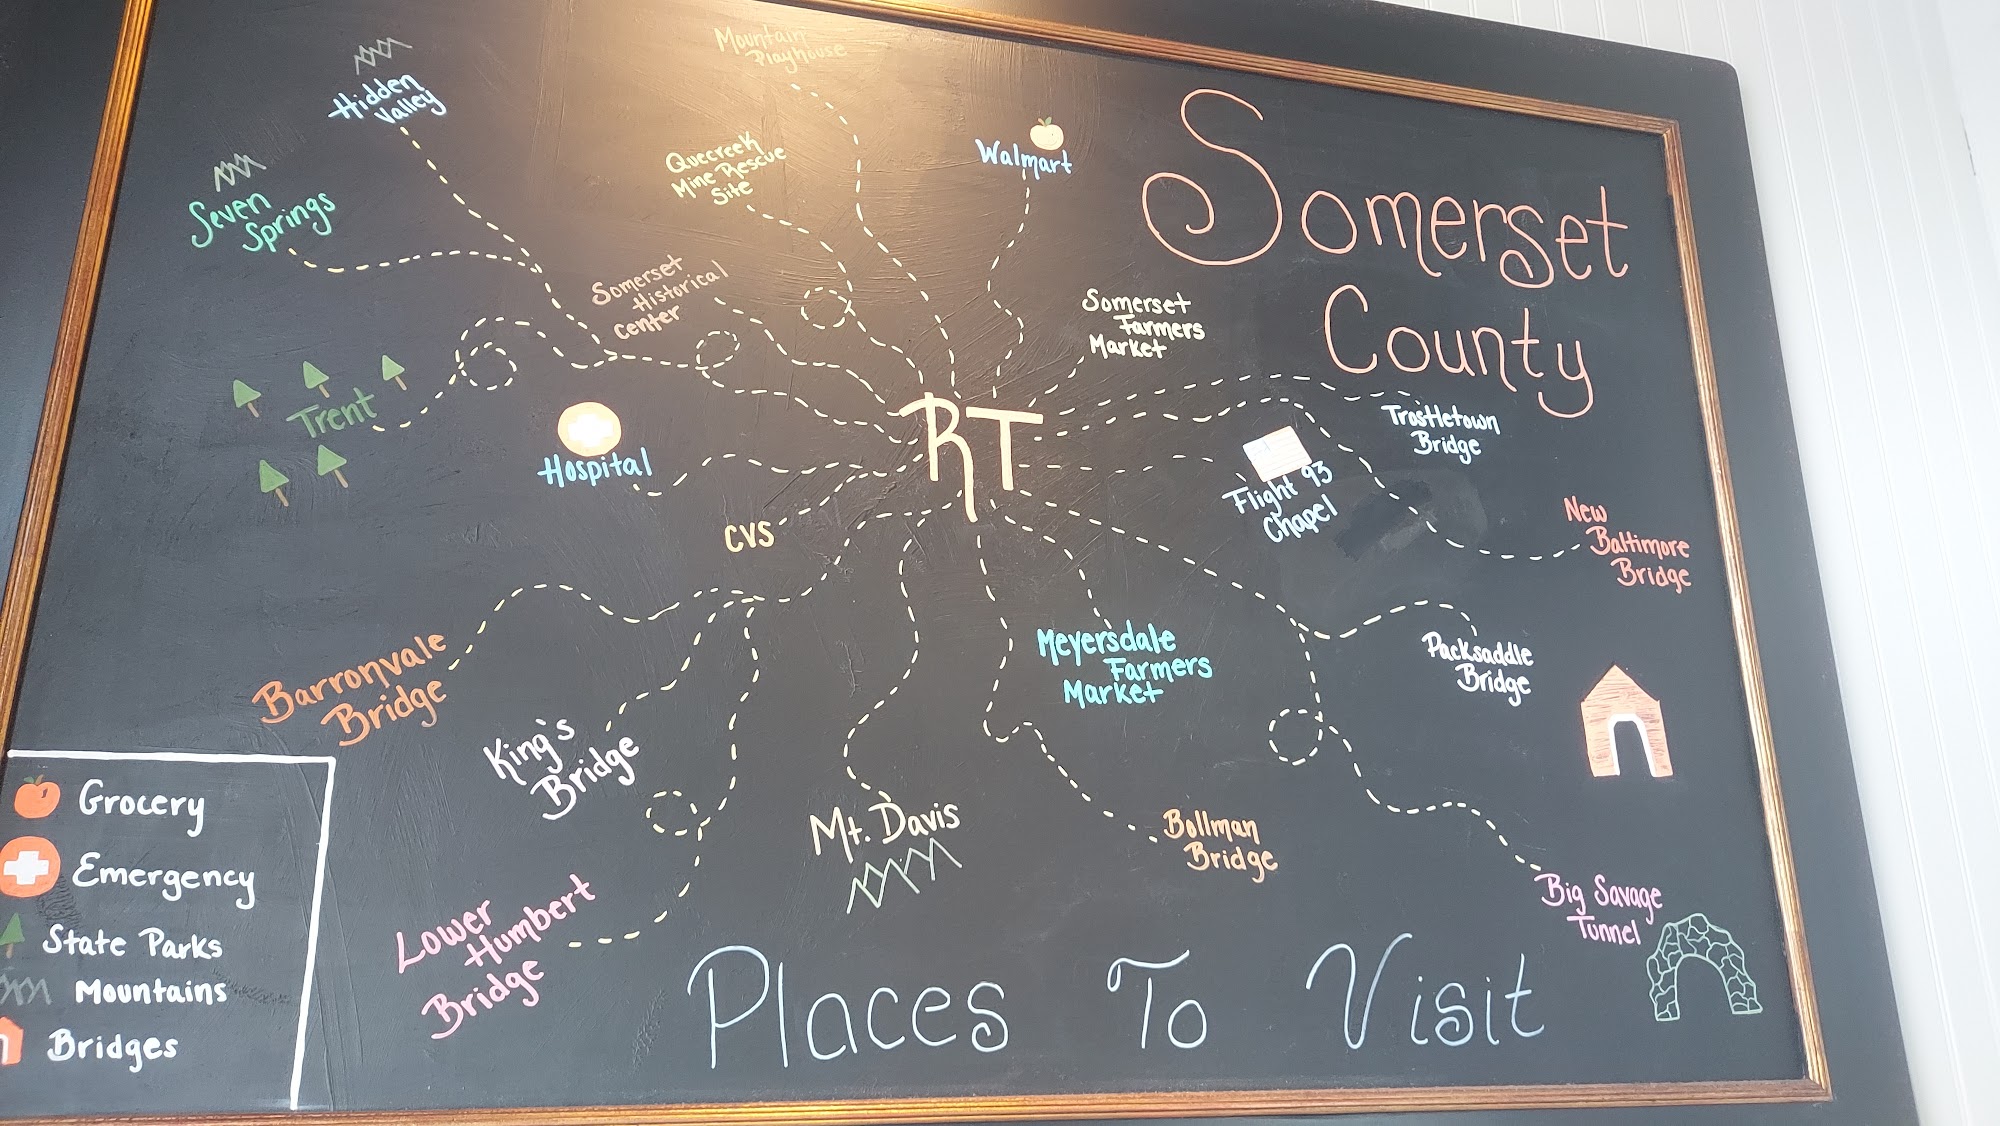 Mountain
Playhouse
Hidden
Valley
Quecreek
Mine Rescue
Site
Walmart
Somerset
County
Seven
Springs
Somerset
Historical
Center
Somerset
Farmers
Market
Trent
RT
Trostletown
Bridge
Hospital
Flight 93
Chapel
CVS
New
Baltimore
Bridge
Barronvale
Bridge
Meyersdale
Farmers
Market
Packsaddle
Bridge
King's
Bridge
Mt. Davis
Bollman
Bridge
Lower
Humbert
Bridge
Big Savage
Tunnel
Grocery
Emergency
State Parks
Mountains
Bridges
Places To Visit